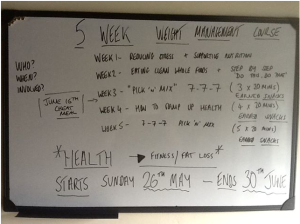 5 WEEK WEIGHT MANAGEMENT COURSE
WHO?
WHEN?
INVOLVED?
JUNE 16TH
CHEAT
MEAL
WEEK 1 - REDUCING STRESS + SUPPORTING NUTRITION
WEEK 2 - EATING CLEAN WHOLE FOODS + STEP BY STEP
"DO THIS, DO THAT"
WEEK 3 - "PICK 'N' MIX" 7-7-7 (3 x 20 MINS)
SNACKS
WEEK 4 - HOW TO HEALTH (4 x 20 MINS)
SNACKS
WEEK 5 - 7-7-7 PICK 'N' MIX (5 x 20 MINS)
SNACKS
*HEALTH* → FITNESS/FAT LOSS*
STARTS SUNDAY 26TH MAY - ENDS 30TH JUNE